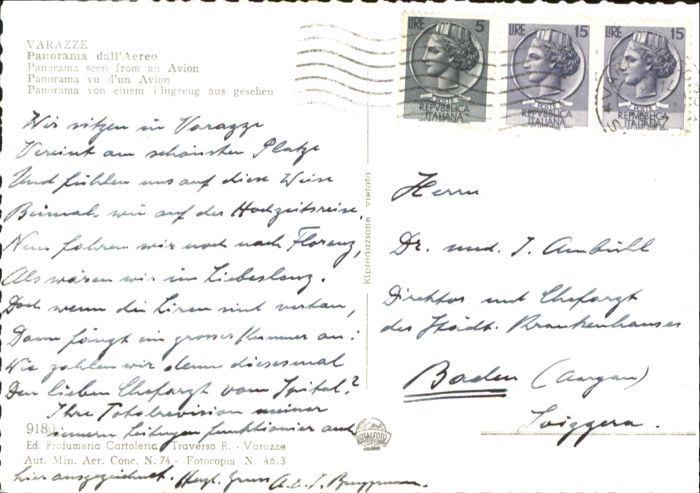 VARAZZE
Panorama dall'Aereo
Panorama seen from an Avion
Panorama vu d'un Avion
Panorama von einem Flugzeug aus gesehen
LIRE 5
LIRE 15
LIRE 15
POSTE
REPVBBLICA
ITALIANA
POSTE
REPVBBLICA
ITALIANA
POSTE
REPVBBLICA
ITALIANA
Wir sitzen in Varazze
Vereint am schönsten Platze
Und fühlen uns auf diese Weise
Beinah wie auf der Hochzeitsreise,
Nun fahren wir noch nach Florenz,
Als wären wir im Liebeslenz.
Doch wenn die Liren sind vertan,
Dann fängt ein grosser Kummer an:
Wie zahlen wir denn diesesmal
Den lieben Chefarzt vom Spital?
Ihre Totalrevision meiner
innern Leitungen funktioniert auch
hier ausgezeichnet. Herzl. Gruss A. & J. Bruggmann.
Riproduzione vietata
Herrn
Dr. med. J. Ambühl
Direktor und Chefarzt
des Städt. Krankenhauses
Baden (Aargau)
Svizzera.
9180
Ed. Profumeria Cartoleria Traverso R. - Varazze
Aut. Min. Aer. Conc. N. 74 - Fotocopia N. 46.3